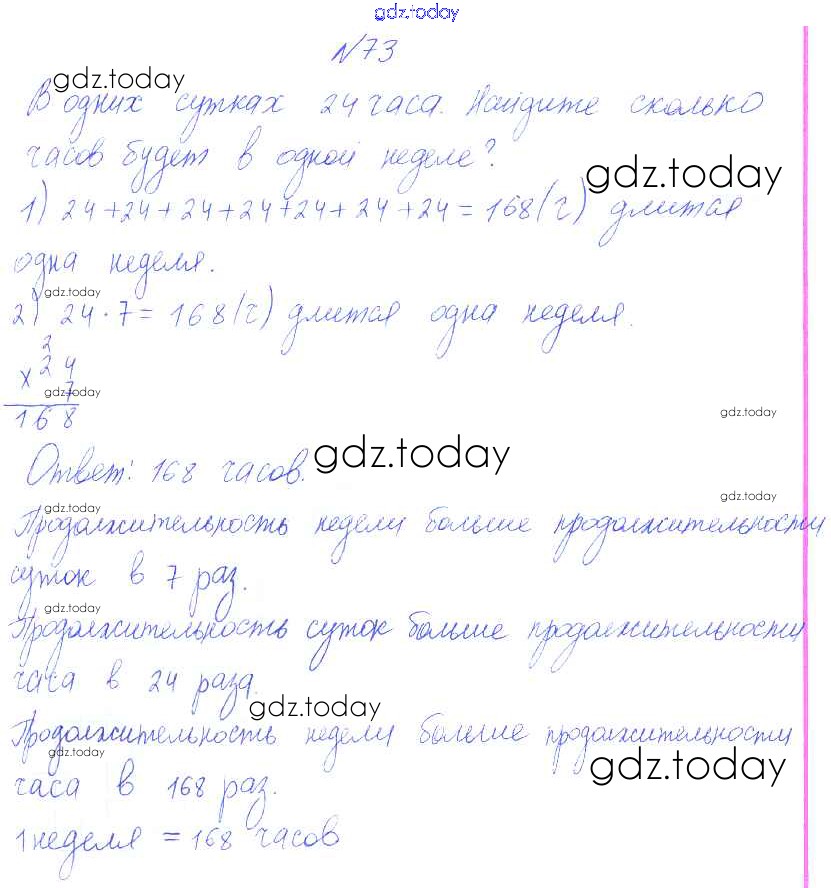 gdz.today
№73
gdz.today
В одних сутках 24 часа. Найдите сколько
часов будет в одной неделе?
gdz.today
1) 24+24+24+24+24+24+24=168(ч) длится
одна неделя.
gdz.today
2) 24·7=168(ч) длится одна неделя.
2
× 24
gdz.today
7
168
gdz.today
Ответ: 168 часов.
gdz.today
gdz.today
gdz.today
Продолжительность недели больше продолжительности
суток в 7 раз.
gdz.today
Продолжительность суток больше продолжительности
часа в 24 раза.
gdz.today
Продолжительность недели больше продолжительности
gdz.today
gdz.today
часа в 168 раз.
1 неделя = 168 часов